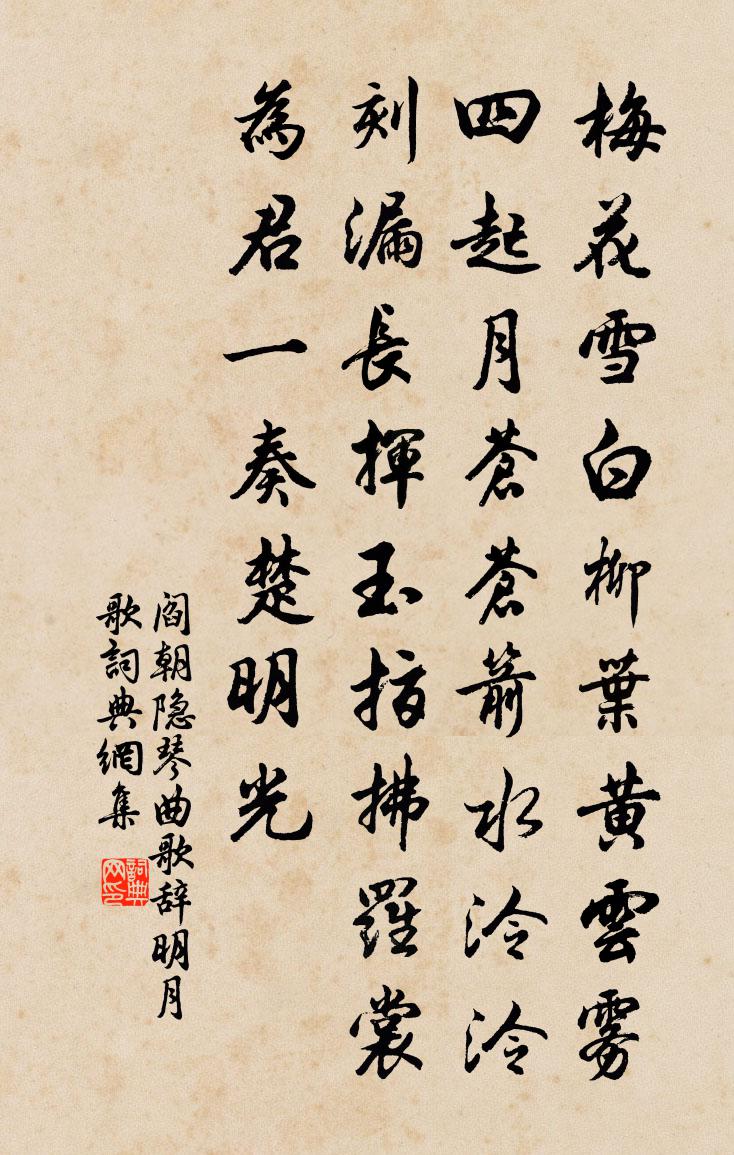 梅花雪白柳葉黃雲霧
四起月蒼蒼箭水泠泠
刻漏長揮玉指拂羅裳
為君一奏楚明光
閻朝隐琴曲歌辞明月
歌詞典網集
詞典网印